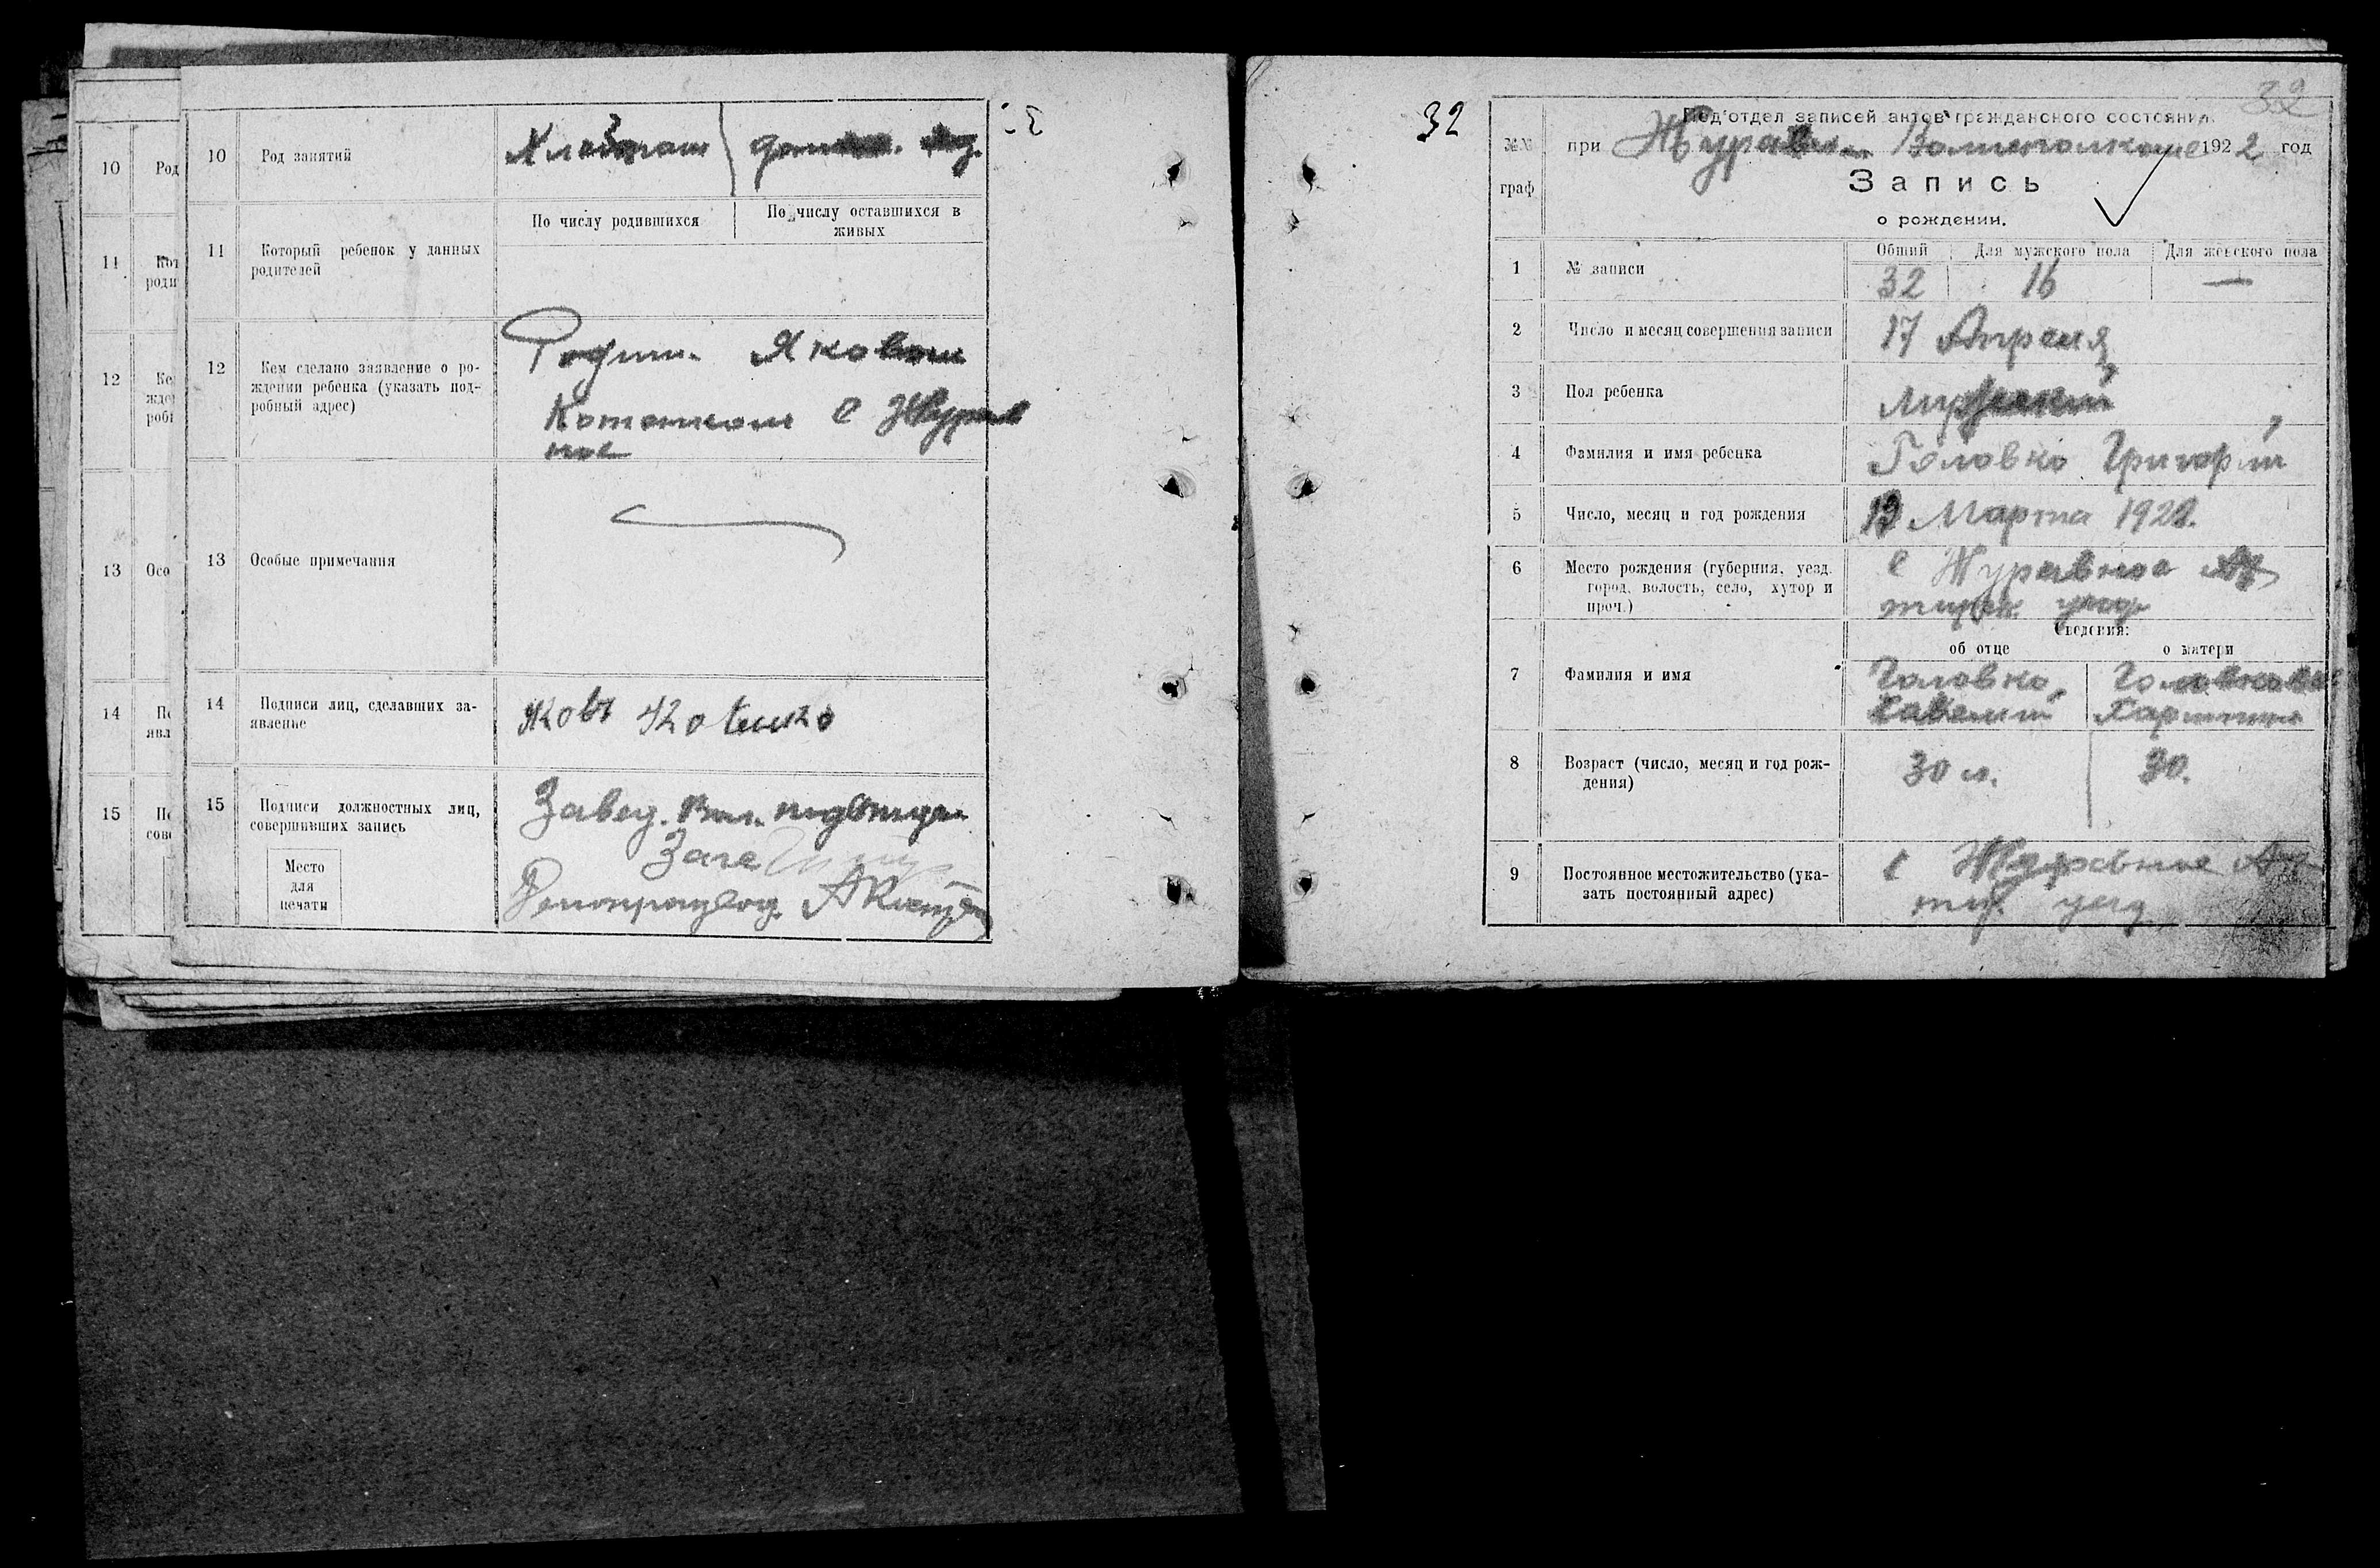 10
Род
11
Кот
роди
12
Ке
жде
робн
13
Осо
14
По
явл
15
По
сове
10
Род занятий
Хлебопаш
домаш. хоз.
11
Который ребенок у данных
родителей
По числу родившихся
По числу оставшихся в
живых
12
Кем сделано заявление о ро-
ждении ребенка (указать под-
робный адрес)
Яковом
С Журав
ное
13
Особые примечания
14
Подписи лиц, сделавших за-
явление
Яковъ
15
Подписи должностных лиц,
совершивших запись
Завед. Вол. подотдел
Загс
Делопроизвод.
Место
для
печати
32
32
№№
граф
Под'отдел записей актов гражданского состояния
при Журавн. Волисполкоме 1922 год
Запись
о рождении.
1
№ записи
Общий
Для мужского пола
Для женского пола
32
16
—
2
Число и месяц совершения записи
17 Апреля
3
Пол ребенка
Мужский
4
Фамилия и имя ребенка
Головко Григорий
5
Число, месяц и год рождения
Марта 1922.
6
Место рождения (губерния, уезд
город, волость, село, хутор и
проч.)
с Журавное Ах
тирск. уезд
Сведения:
об отце
о матери
7
Фамилия и имя
Головко
Савелий
Головкова
8
Возраст (число, месяц и год рож-
дения)
30 л.
30.
9
Постоянное местожительство (ука-
зать постоянный адрес)
с Журавное Ах
тир. уезд